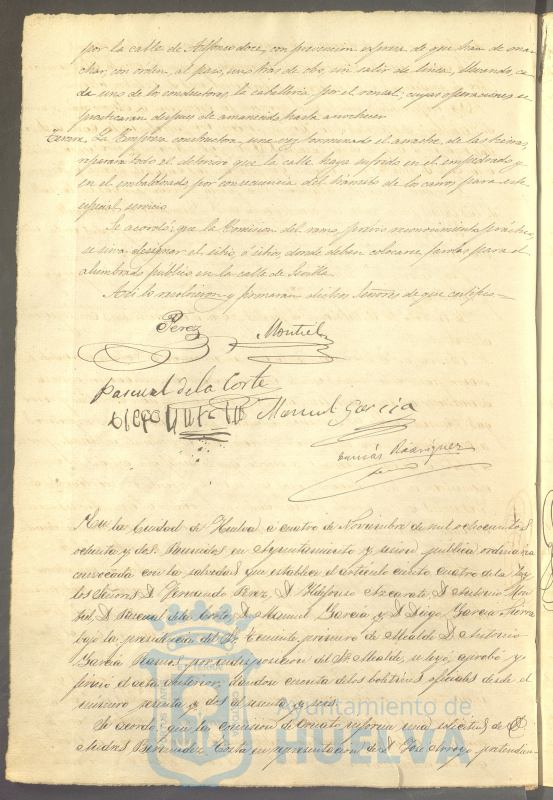 por la calle de Alfonso doce, con prevencion espresa de que han de mar
char, con orden, al paso, uno tras de otro, sin salir de linea, llevando, ca
da uno de los conductores, la caballeria por el ronsal; cuyas operaciones se
practicaran despues de amanecido hasta anochecer
Tercera. La Empresa constructora, una vez terminado el arrastre de las
reparará todo el deterioro que la calle haya sufrido en el empedrado y
en el embaldosado por consecuencia del transito de los carros para este
especial servicio
Se acordó: que la Comision del ramo, previo reconocimiento práctico,
se sirva designar el sitio, ó sitios, donde deban colocarse farolas para el
alumbrado publico en la calle de Sevilla
Asi lo resolvieron y firmaran dichos Señores de que certifico=
Perez Montiel
Pascual de la Corte
Manuel Garcia
Tomás Rodriguez
En la Ciudad de Huelva á cuatro de Noviembre de mil ochocientos
ochenta y dos. Reunidos en Ayuntamiento y sesion publica ordinaria
convocada con la salvedad que establece el articulo ciento cuatro de la Ley
los Señores D. Fernando Perez, D. Ildefonso Azcarate, D. Antonio Mon
tiel, D. Pascual de la Corte, D. Manuel Garcia y D. Diego Garcia
bajo la presidencia del Sr. Teniente primero de Alcalde D. Antonio
Garcia Ramos, por indisposicion del Sr. Alcalde, se leyó, aprobó y
firmó el acta anterior, dandose cuenta de los boletines oficiales desde el
numero
Ayuntamiento de
HUELVA
Se acordó: que la Comision de Ornato informe una solicitud de D.
Bermudez en representacion de D. José Arroyo, pretendien-